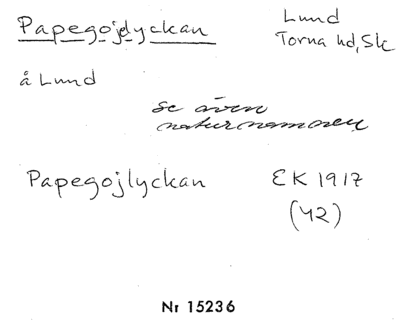 Papegojlyckan
Lund
Torna hd, Sk
å Lund
se även
naturnamnen
Papegojlyckan EK 1917
(42)
Nr 15236